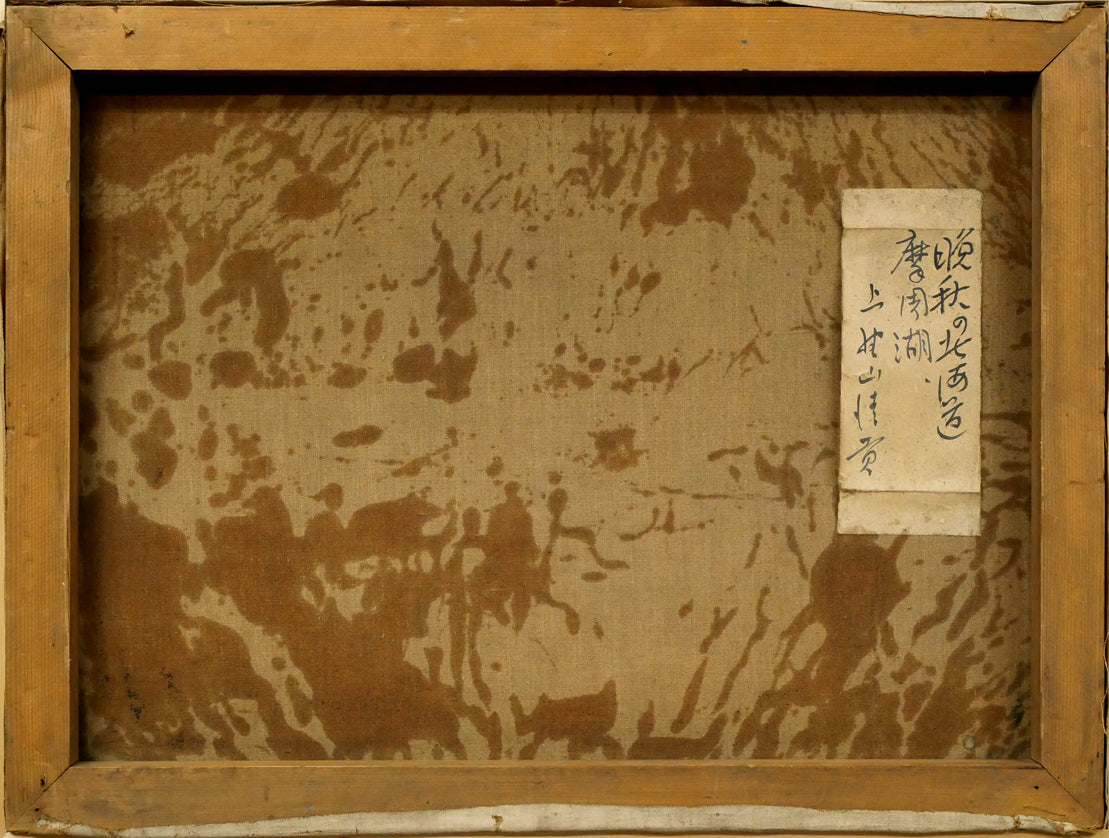 晩秋の北海道
摩周湖、
上野山清貢